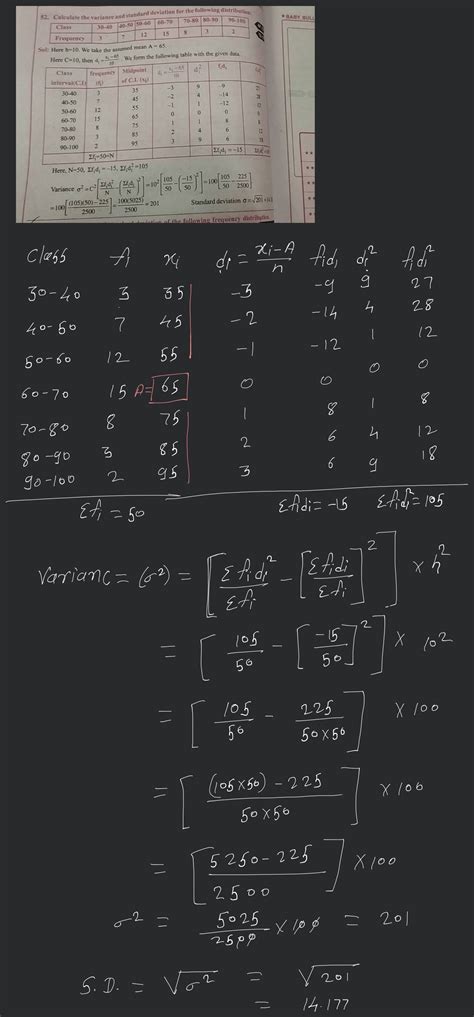 52. Calculate the variance and standard deviation for the following distribution:
Class 30-40 40-50 50-60 60-70 70-80 80-90 90-100
Frequency 3 7 12 15 8 3 2
Sol: Here h=10. We take the assumed mean A = 65.
Here C=10, then dᵢ = (xᵢ−65)/10. We form the following table with the given data.
Class interval(C.I) frequency (fᵢ) Midpoint of C.I. (xᵢ) dᵢ = (xᵢ−65)/10 dᵢ² fᵢdᵢ
30-40 3 35 -3 9 -9 27
40-50 7 45 -2 4 -14 28
50-60 12 55 -1 1 -12 12
60-70 15 65 0 0 0 0
70-80 8 75 1 1 8 8
80-90 3 85 2 4 6 12
90-100 2 95 3 9 6 18
Σfᵢ=50=N Σfᵢdᵢ = -15
Here, N=50, Σfᵢdᵢ = -15, Σfᵢdᵢ²=105
Variance σ²=C²[Σfᵢdᵢ²/N − (Σfᵢdᵢ/N)²]=10²[105/50 − (−15/50)²]=100[105/50 − 225/2500]
=100[((105)(50)−225)/2500]=100(5025)/2500=201 Standard deviation σ=√201
of the following frequency distribution
Class fᵢ xᵢ dᵢ = (xᵢ−A)/h fᵢdᵢ dᵢ² fᵢdᵢ²
30-40 3 35 -3 -9 9 27
40-50 7 45 -2 -14 4 28
50-60 12 55 -1 -12 1 12
60-70 15 A= 65 0 0 0 0
70-80 8 75 1 8 1 8
80-90 3 85 2 6 4 12
90-100 2 95 3 6 9 18
Σfᵢ = 50 Σfᵢdᵢ = -15 Σfᵢdᵢ² = 105
Varianc = (σ²) = [Σfᵢdᵢ²/Σfᵢ − [Σfᵢdᵢ/Σfᵢ]²] × h²
= [105/50 − [−15/50]²] × 10²
= [105/50 − 225/50×50] × 100
= [(105×50) − 225/50×50] × 100
= [5250−225/2500] × 100
σ² = 5025/2500 × 100 = 201
S.D. = √σ² = √201
= 14.177